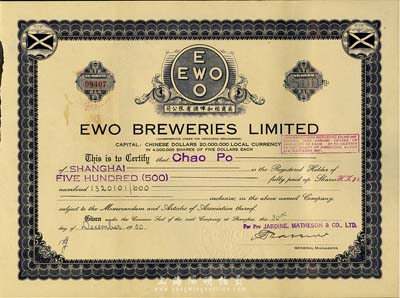 08407
E
EWO
O
英商怡和啤酒有限公司
EWO BREWERIES LIMITED
CAPITAL: CHINESE DOLLARS 20,000,000 LOCAL CURRENCY
IN 4,000,000 SHARES OF FIVE DOLLARS EACH
This is to Certify that Chao Po
of SHANGHAI is the Registered Holder of
FIVE HUNDRED (500) fully paid up Shares
numbered 1320101/600
inclusive, in the above named Company,
subject to the Memorandum and Articles of Association thereof.
Given under the Common Seal of the said Company at Shanghai, this 30th
day of December 1950.
For Pro JARDINE, MATHESON & CO. LTD.
GENERAL MANAGERS